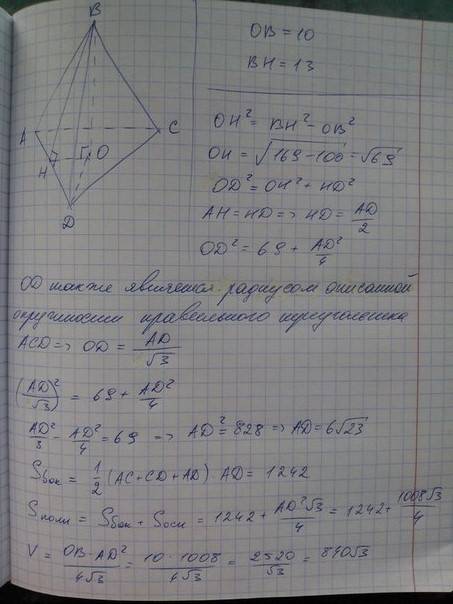 B
A
C
H
O
D
OB = 10
BH = 13
OH² = BH² - OB²
OH = √169-100 = √69
OD² = OH² + HD²
AH = HD => HD = AD/2
OD² = 69 + AD²/4
OD также является радиусом описанной
окружности правильного треугольника
ACD => OD = AD/√3
(AD/√3)² = 69 + AD²/4
AD²/3 - AD²/4 = 69 => AD² = 828 => AD = 6√23
Sбок = 1/2 (AC + CD + AD) · AD = 1242
Sполн = Sбок + Sосн = 1242 + AD²√3/4 = 1242 + 1008√3/4
V = OB·AD²/4√3 = 10·1008/4√3 = 2520/√3 = 840√3